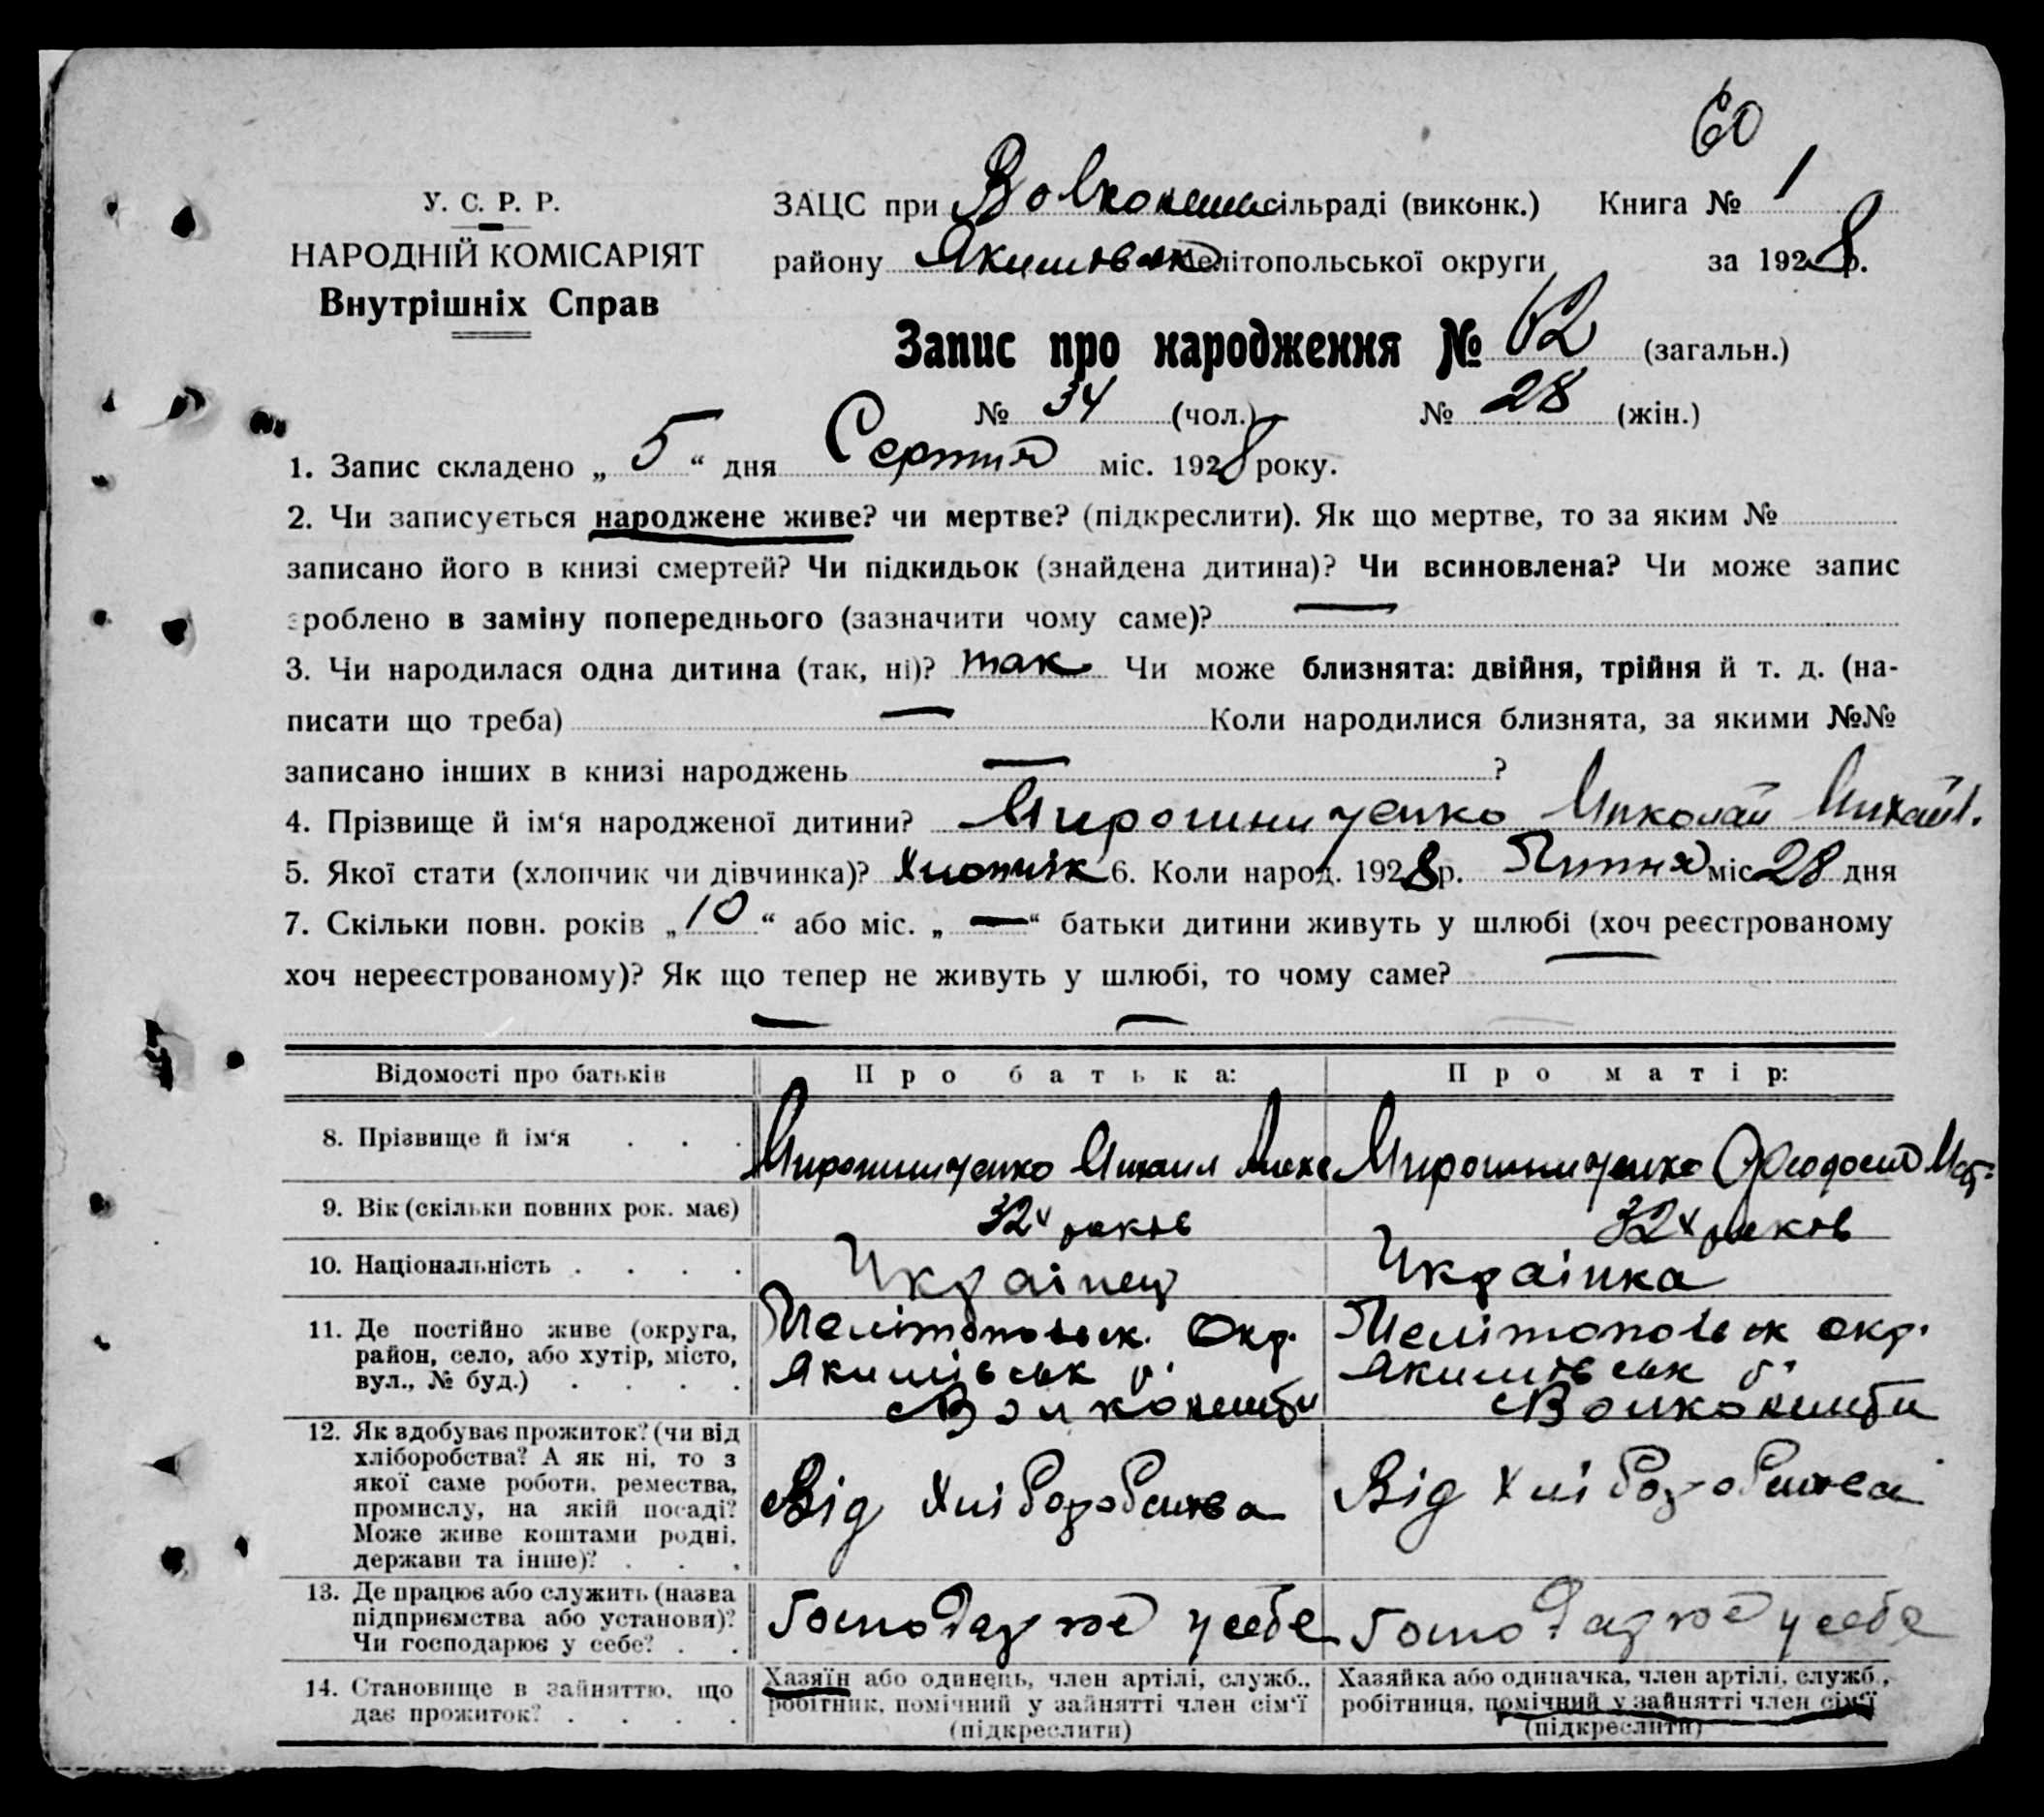 60
У. С. Р. Р.
ЗАЦС при Волконеш сільраді (виконк.) Книга № 1
НАРОДНІЙ КОМІСАРІЯТ
району Якимівськ Мелітопольської округи за 1928 р.
Внутрішніх Справ
Запис про народження № 62 (загальн.)
№ 34 (чол.) № 28 (жін.)
1. Запис складено „ 5 “ дня Серпня міс. 1928 року.
2. Чи записується народжене живе? чи мертве? (підкреслити). Як що мертве, то за яким №
записано його в книзі смертей? Чи підкидьок (знайдена дитина)? Чи всиновлена? Чи може запис
зроблено в заміну попереднього (зазначити чому саме)? —
3. Чи народилася одна дитина (так, ні)? так Чи може близнята: двійня, трійня й т. д. (на-
писати що треба) — Коли народилися близнята, за якими №№
записано інших в книзі народжень — ?
4. Прізвище й ім‘я народженої дитини? Мирошниченко Миколай Михайл.
5. Якої стати (хлопчик чи дівчинка)? Хлопчік 6. Коли народ. 1928 р. Липня міс 28 дня
7. Скільки повн. років „ 10 “ або міс. „ — “ батьки дитини живуть у шлюбі (хоч реєстрованому
хоч нереєстрованому)? Як що тепер не живуть у шлюбі, то чому саме? —
— —
Відомості про батьків Про батька: Про матір:
8. Прізвище й ім‘я . . . Мирошниченко Михаил Алекс Мирошниченко Феодосия
9. Вік (скільки повних рок. має) 32х років 32х років
10. Національність . . . . Українец Українка
11. Де постійно живе (округа,
район, село, або хутір, місто,
вул., № буд.) . . . .
Мелітопольск. Окр.
Якимівськ р.
с Волконешти
Мелітопольск окр.
Якимівськ р.
с Волконешти
12. Як здобуває прожиток? (чи від
хліборобства? А як ні, то з
якої саме роботи, ремества,
промислу, на якій посаді?
Може живе коштами родні,
держави та інше)? . . .
Від Хліборобства
Від Хліборобства
13. Де працює або служить (назва
підприємства або установи)?
Чи господарює у себе? . .
Господарює у себе
Господарює у себе
14. Становище в зайняттю, що
дає прожиток? . . . .
Хазяїн або одинець, член артілі, служб.,
робітник, помічний у зайнятті член сім‘ї
(підкреслити)
Хазяйка або одиначка, член артілі, служб.,
робітниця, помічний у зайнятті член сім‘ї
(підкреслити)